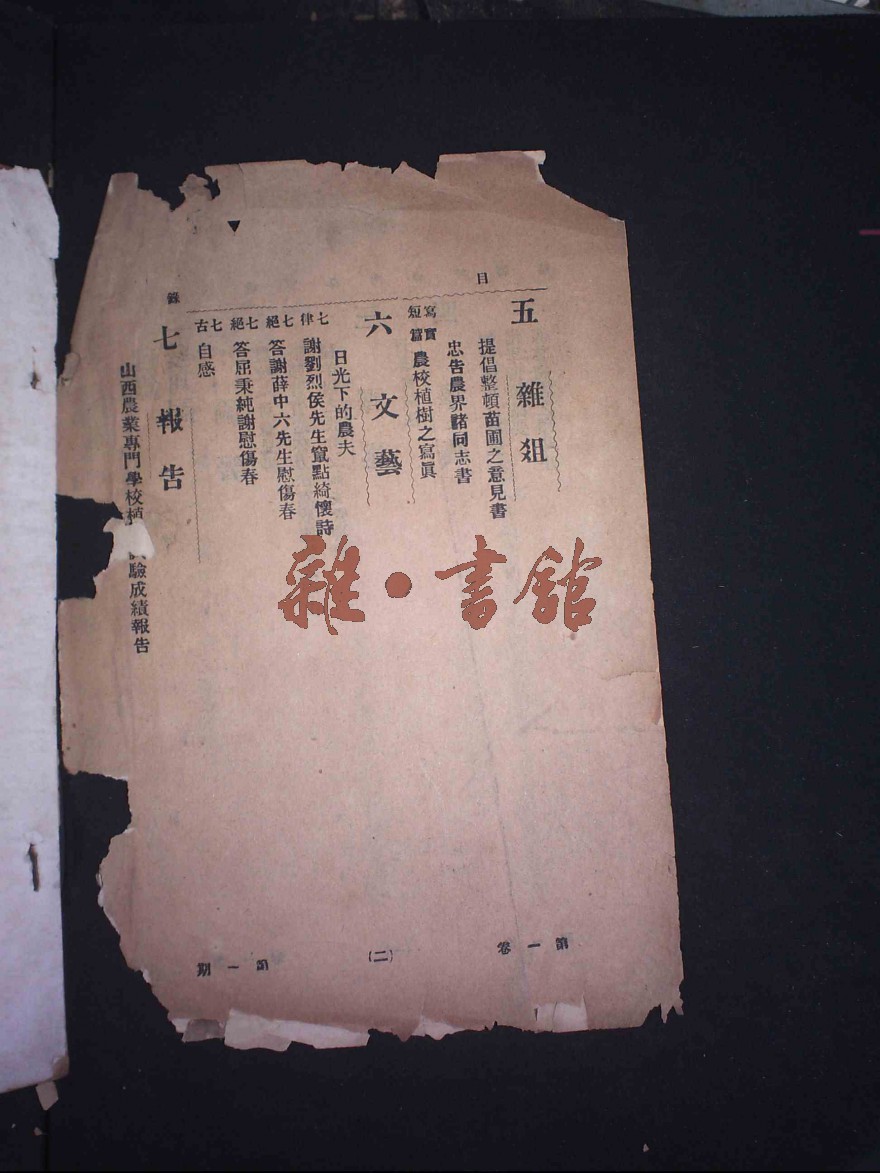 目
五　雜俎
提倡整頓苗圃之意見書
忠告農界諸同志書
寫實短篇　農校植樹之寫眞
六　文藝
日光下的農夫
七律　謝劉烈侯先生竄點綺懷詩
七絕　答謝薛中六先生慰傷春
七絕　答屈秉純謝慰傷春
七古　自感
錄
七　報告
山西農業專門學校植　驗成績報告
第一卷
(二)
第一期
雜·書館